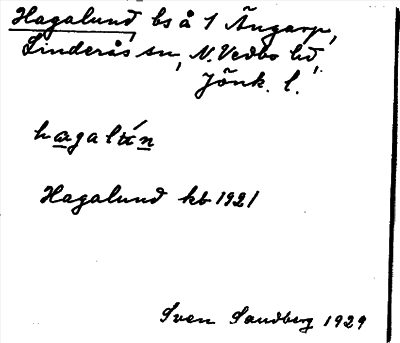 Hagalund, bs å 1 Ängarp,
Linderås sn, N. Vedbo hd,
Jönk. l.
Hagalund kb 1921
Sven Sandberg 1929